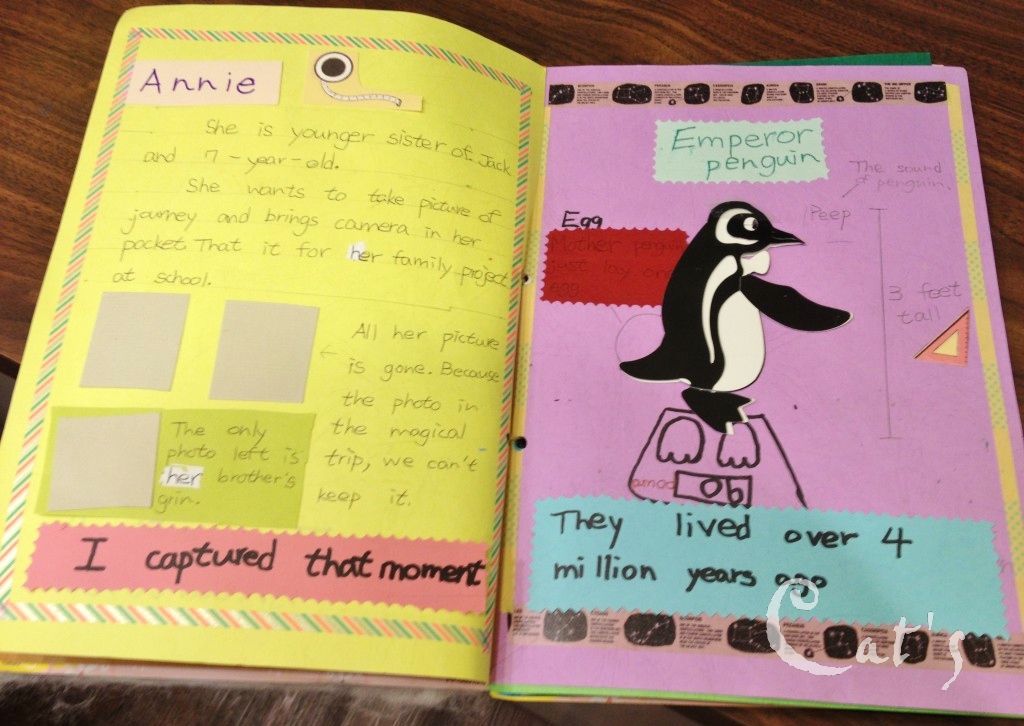 Annie
She is younger sister of Jack
and 7-year-old.
She wants to take picture of
journey and brings camera in her
pocket. That it for her family project
at school.
All her picture
is gone. Because
the photo in
the magical
trip, we can't
keep it.
The only
photo left is
her brother's
grin.
I captured that moment
Emperor
penguin
The sound
of penguin.
Peep
Egg
Mother penguin
just lay one
egg
3 feet
tall
They lived over 4
million years ago
Cat's